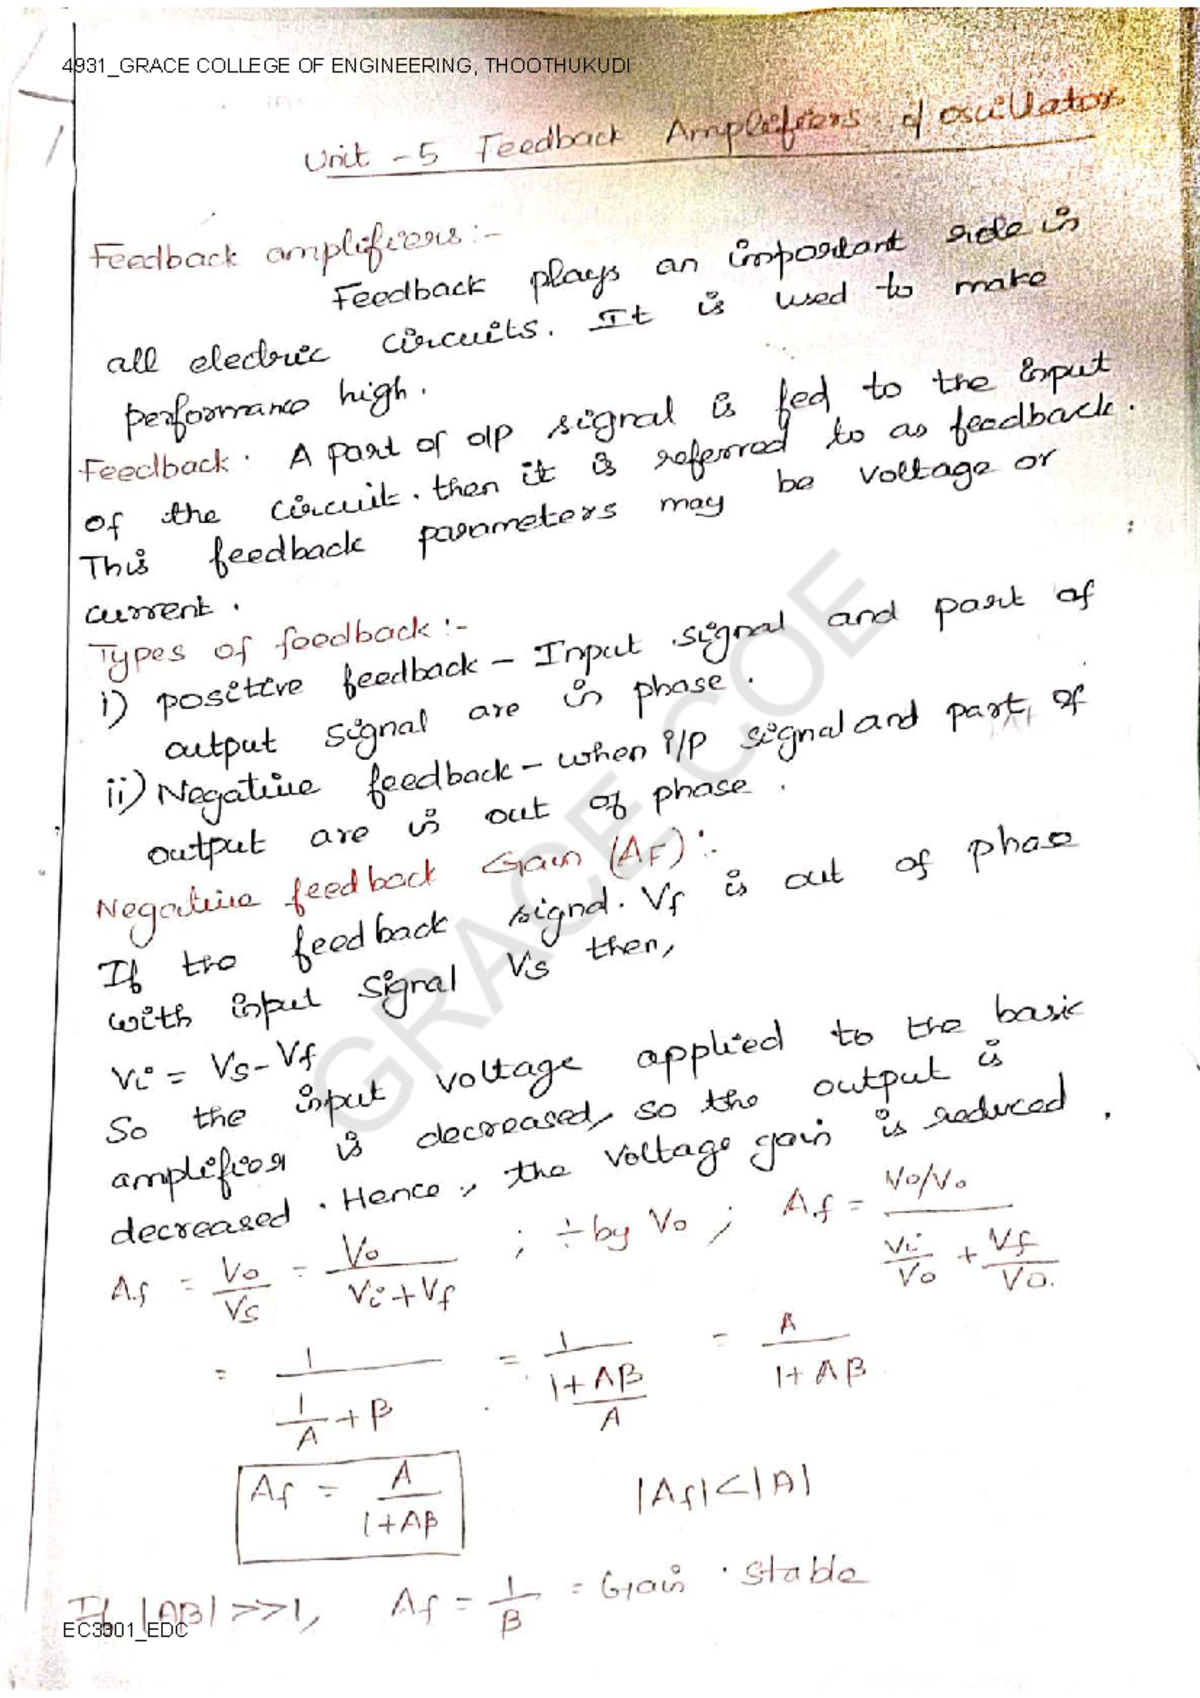 4931_GRACE COLLEGE OF ENGINEERING, THOOTHUKUDI
Unit - 5 Feedback Amplifiers & oscillators
Feedback amplifiers:-
Feedback plays an important role in
all electric circuits. It is used to make
performance high.
Feedback. A part of o/p signal is fed to the input
of the circuit. then it is referred to as feedback.
This feedback parameters may be voltage or
current.
Types of feedback:-
i) positive feedback - Input signal and part of
output signal are in phase.
ii) Negative feedback - when i/p signal and part of
output are is out of phase.
Negative feedback Gain (AF):-
If the feedback signal. Vf is out of phase
with input signal Vs then,
Vi = Vs - Vf
So the input voltage applied to the basic
amplifier is decreased, so the output is
decreased. Hence, the voltage gain is reduced.
Af = Vo/Vs = Vo/(Vi+Vf) ; ÷ by Vo ; Af = (Vo/Vo)/(Vi/Vo + Vf/Vo.)
= 1/(1/A + β) = 1/((1+Aβ)/A) = A/(1+Aβ)
Af = A/(1+Aβ) |Af|<|A|
If |AB| >>1, Af = 1/β = Gain. stable
EC3301_EDC
GRACE COE